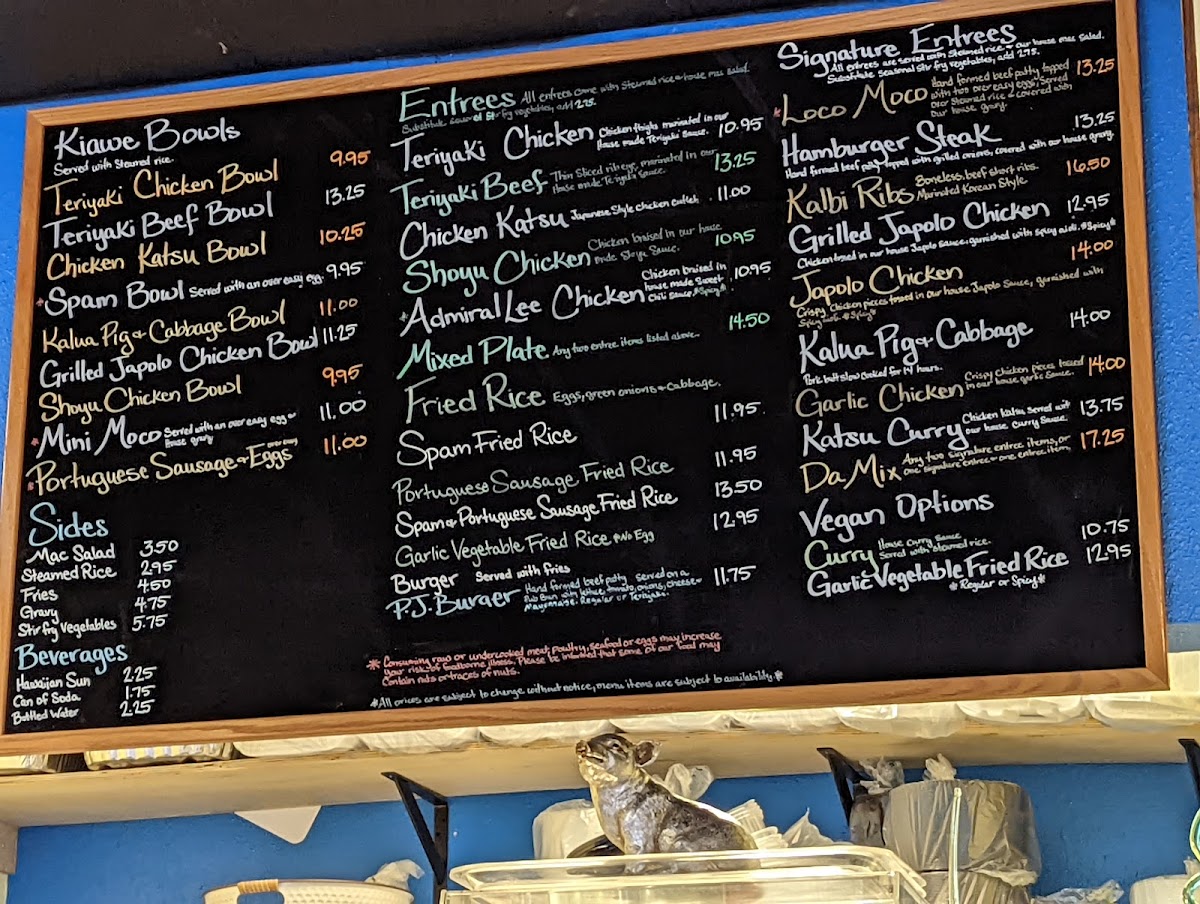 Kiawe Bowls
Served with Steamed rice.
Teriyaki Chicken Bowl 9.95
Teriyaki Beef Bowl 13.25
Chicken Katsu Bowl 10.25
*Spam Bowl Served with an over easy egg. 9.95
Kalua Pig & Cabbage Bowl 11.00
Grilled Japolo Chicken Bowl 11.25
Shoyu Chicken Bowl 9.95
*Mini Moco Served with an over easy egg & 11.00
house gravy
*Portuguese Sausage & Eggs over easy 11.00
Sides
Mac Salad 3.50
Steamed Rice 2.95
Fries 4.50
Gravy 4.75
Stir fry Vegetables 5.75
Beverages
Hawaiian Sun 2.25
Can of Soda 1.75
Bottled Water 2.25
Entrees All entrees come with Steamed rice & house mac salad.
Substitute seasonal stir fry vegetables, add 2.75.
Teriyaki Chicken Chicken thighs marinated in our 10.95
house made Teriyaki Sauce.
Teriyaki Beef Thin Sliced rib eye, marinated in our 13.25
House made Teriyaki Sauce.
Chicken Katsu Japanese Style chicken cutlet. 11.00
Shoyu Chicken Chicken braised in our house 10.95
made Shoyu Sauce.
*Admiral Lee Chicken Chicken braised in 10.95
house made Sweet
Chili Sauce. *Spicy*
Mixed Plate Any two entree items listed above. 14.50
Fried Rice Eggs, green onions & Cabbage.
Spam Fried Rice 11.95
Portuguese Sausage Fried Rice 11.95
Spam & Portuguese Sausage Fried Rice 13.50
Garlic Vegetable Fried Rice *No Egg 12.95
Burger Served with fries
P.J. Burger Hand formed beef patty served on a 11.75
Pub Bun with lettuce, tomato, onions, cheese &
Mayonnaise. Regular or Teriyaki.
* Consuming raw or undercooked meat, poultry, seafood or eggs may increase
your risk of foodborne illness. Please be informed that some of our food may
Contain nuts or traces of nuts.
*All prices are subject to change without notice, menu items are subject to availability.*
Signature Entrees
All entrees are served with Steamed rice & our house mac salad.
Substitute seasonal stir fry vegetables, add 2.75.
*Loco Moco Hand formed beef patty topped 13.25
with two over easy eggs, served
over steamed rice & covered with
our house gravy.
Hamburger Steak 13.25
Hand formed beef patty topped with grilled onions, covered with our house gravy.
Kalbi Ribs Boneless beef short ribs. 16.50
Marinated Korean Style
Grilled Japolo Chicken 12.95
Chicken tossed in our house Japolo Sauce, garnished with spicy aioli. *Spicy*
Japolo Chicken 14.00
Crispy Chicken pieces tossed in our house Japolo Sauce, garnished with
Spicy aioli. *Spicy*
Kalua Pig & Cabbage 14.00
Pork butt slow cooked for 14 hours.
Garlic Chicken Crispy chicken pieces tossed 14.00
in our house garlic Sauce.
Katsu Curry Chicken katsu served wit 13.75
our house curry Sauce.
Da Mix Any two signature entree items, or 17.25
one signature entree & one entree item,
Vegan Options
Curry House Curry Sauce 10.75
Served with steamed rice.
Garlic Vegetable Fried Rice 12.95
*Regular or Spicy*